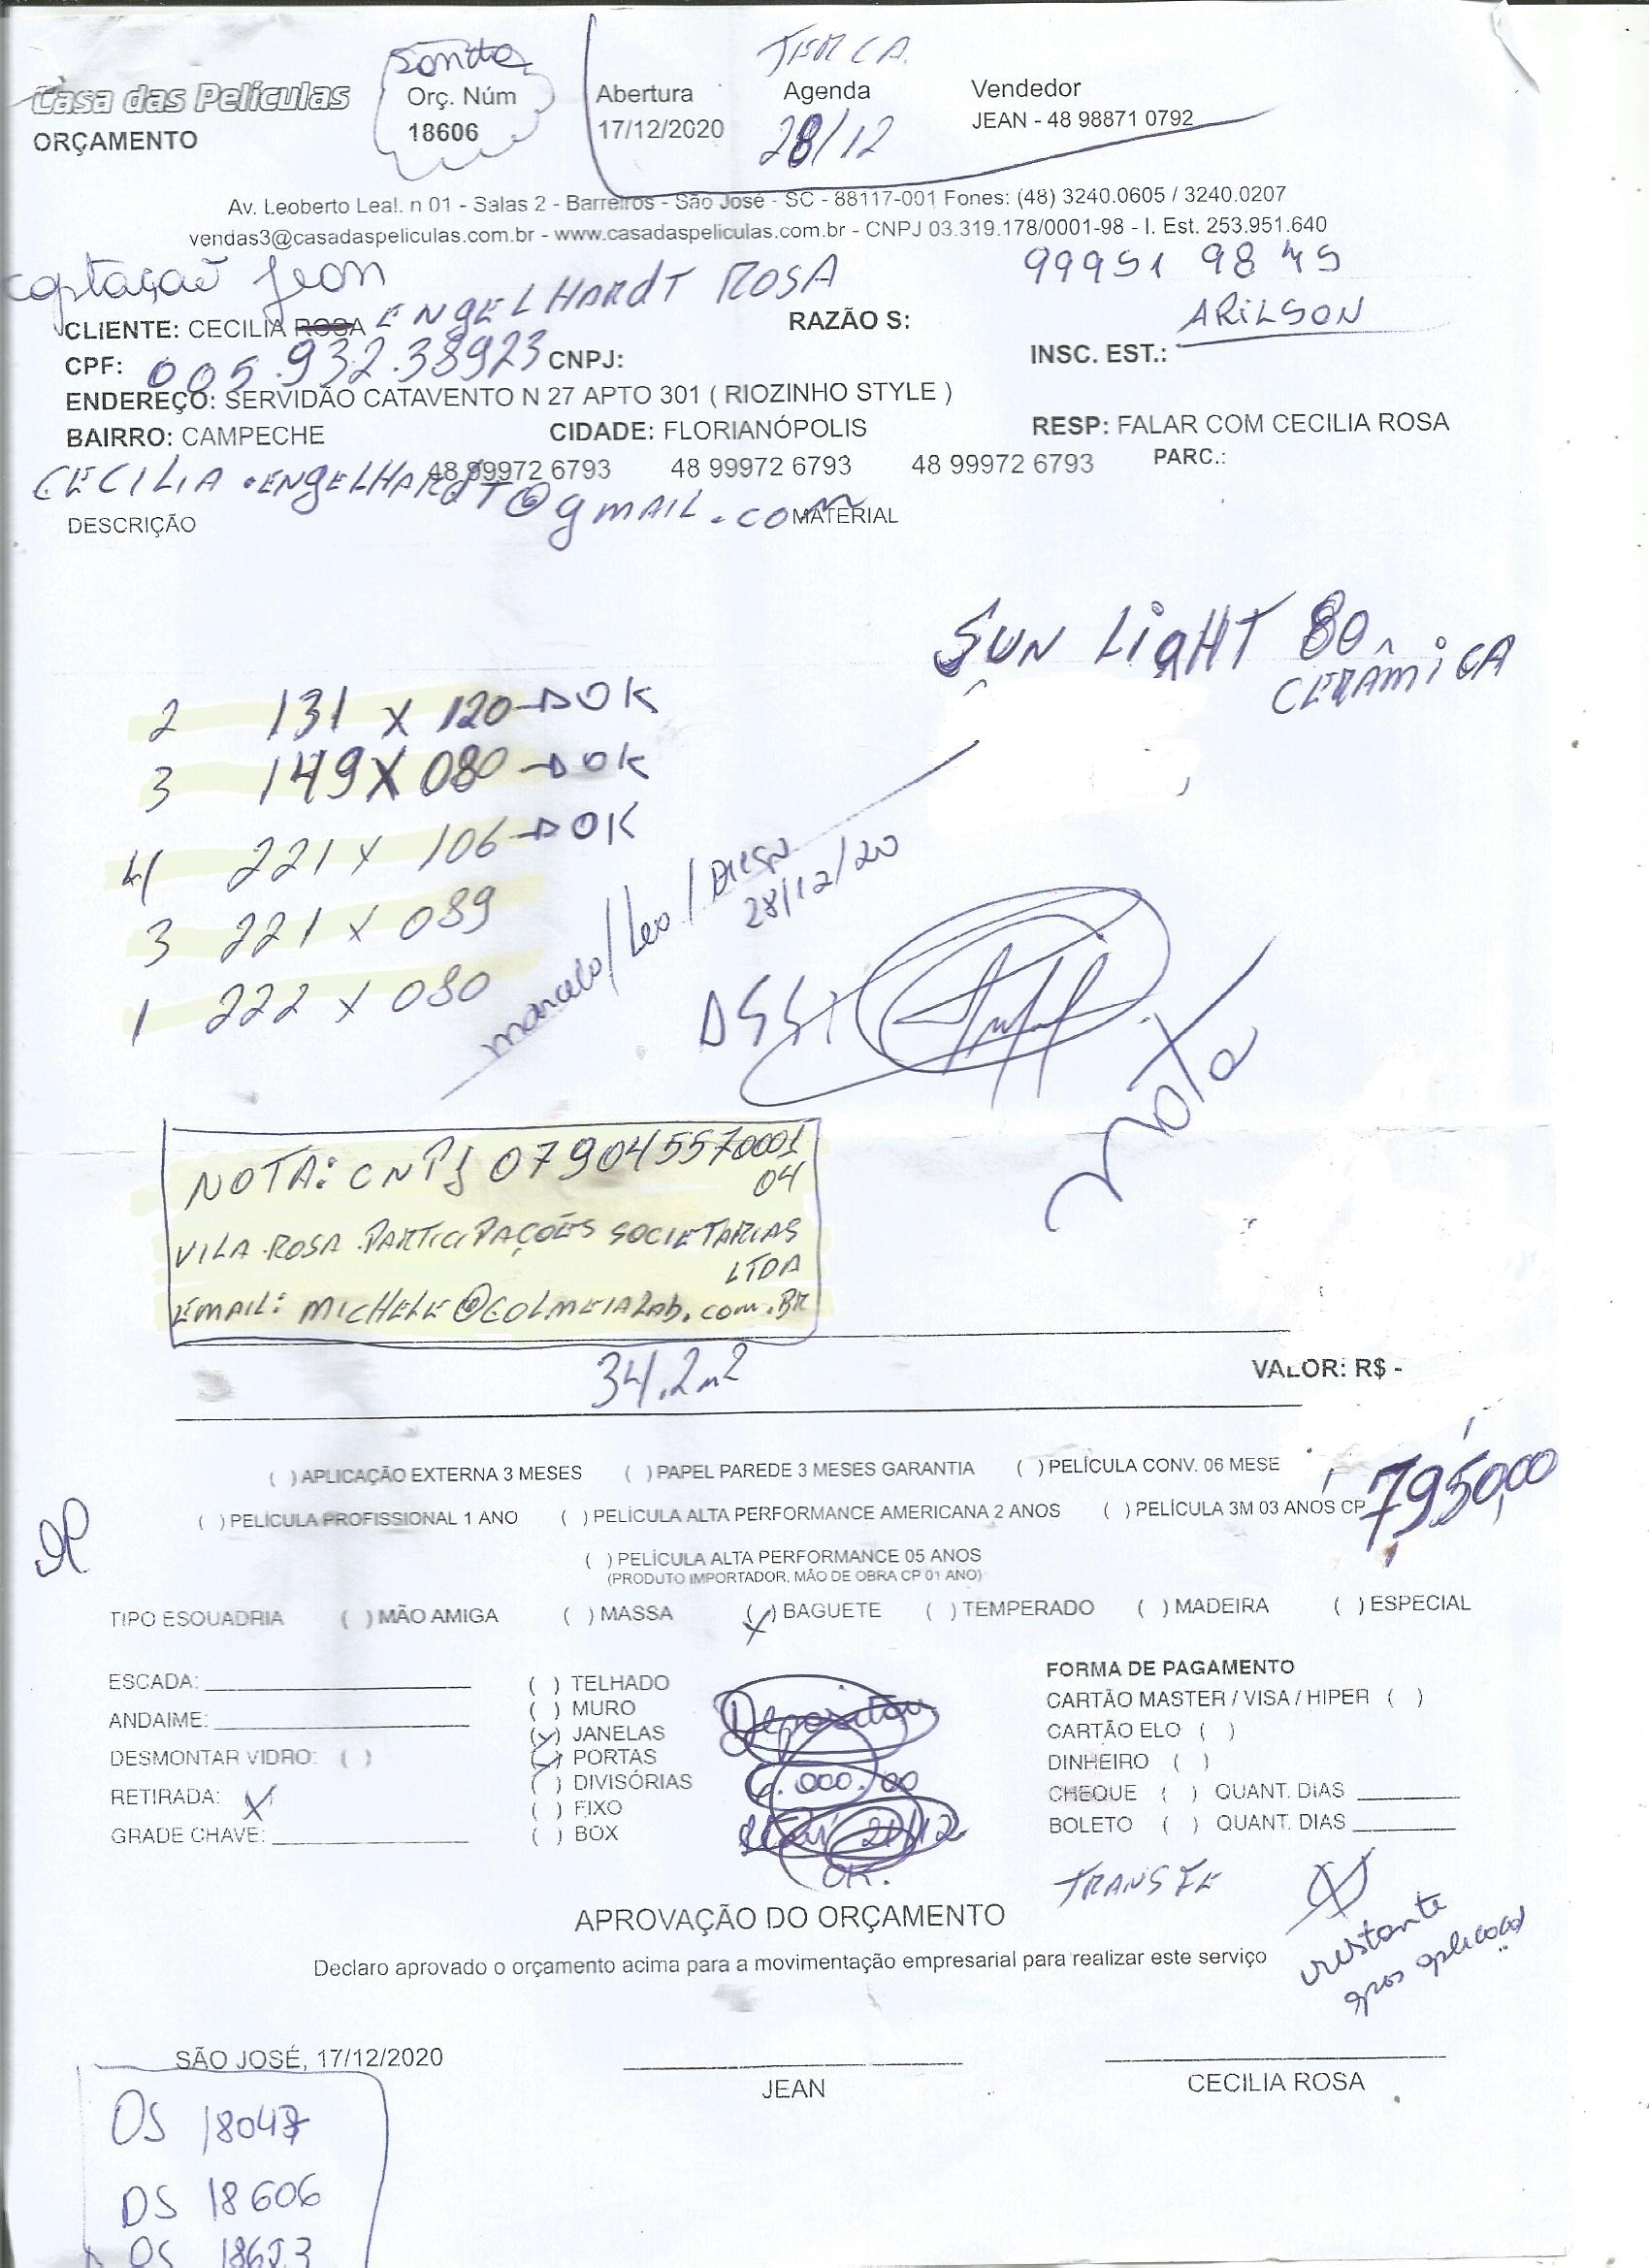 TERCA
Sandra
Casa das Películas
Orç. Núm
Abertura
Agenda
Vendedor
ORÇAMENTO
18606
17/12/2020
28/12
JEAN - 48 98871 0792
Av. Leoberto Leal. n 01 - Salas 2 - Barreiros - São José - SC - 88117-001 Fones: (48) 3240.0605 / 3240.0207
vendas3@casadaspeliculas.com.br - www.casadaspeliculas.com.br - CNPJ 03.319.178/0001-98 - I. Est. 253.951.640
captação Jean
99951 9845
CLIENTE: CECILIA ROSA ENGELHARDT ROSA
RAZÃO S:
ARILSON
CPF: 005.932.38923
CNPJ:
INSC. EST.:
ENDEREÇO: SERVIDÃO CATAVENTO N 27 APTO 301 ( RIOZINHO STYLE )
BAIRRO: CAMPECHE
CIDADE: FLORIANÓPOLIS
RESP: FALAR COM CECILIA ROSA
48 99972 6793
48 99972 6793
48 99972 6793
PARC.:
CECILIA.ENGELHARDT@gmAIL.COM
DESCRIÇÃO
MATERIAL
SUN LIGHT 80
CERÂMICA
2 131 X 120 OK
3 149 X 080 OK
4 221 X 106 OK
3 221 X 089
1 222 X 080
marcelo/Leo/
28/12/20
ASS:
Nota
NOTA: CNPJ 079045570001
04
VILA ROSA PARTICIPAÇÕES SOCIETARIAS
LTDA
EMAIL: MICHELE@COLMEIALAB.COM.BR
34.2m2
VALOR: R$ -
7950,00
( ) APLICAÇÃO EXTERNA 3 MESES
( ) PAPEL PAREDE 3 MESES GARANTIA
( ) PELÍCULA CONV. 06 MESE
( ) PELÍCULA PROFISSIONAL 1 ANO
( ) PELÍCULA ALTA PERFORMANCE AMERICANA 2 ANOS
( ) PELÍCULA 3M 03 ANOS CP
( ) PELÍCULA ALTA PERFORMANCE 05 ANOS
(PRODUTO IMPORTADOR, MÃO DE OBRA CP 01 ANO)
TIPO ESQUADRIA
( ) MÃO AMIGA
( ) MASSA
(X) BAGUETE
( ) TEMPERADO
( ) MADEIRA
( ) ESPECIAL
ESCADA:
ANDAIME:
DESMONTAR VIDRO: ( )
RETIRADA: X
GRADE CHAVE:
( ) TELHADO
( ) MURO
(X) JANELAS
(X) PORTAS
( ) DIVISÓRIAS
( ) FIXO
( ) BOX
Depositou
.000,00
21/12
OK.
FORMA DE PAGAMENTO
CARTÃO MASTER / VISA / HIPER ( )
CARTÃO ELO ( )
DINHEIRO ( )
CHEQUE ( ) QUANT. DIAS
BOLETO ( ) QUANT. DIAS
TRANSFE X
restante
apos aplicação
APROVAÇÃO DO ORÇAMENTO
Declaro aprovado o orçamento acima para a movimentação empresarial para realizar este serviço
SÃO JOSÉ, 17/12/2020
JEAN
CECILIA ROSA
OS 18047
OS 18606
OS 18623